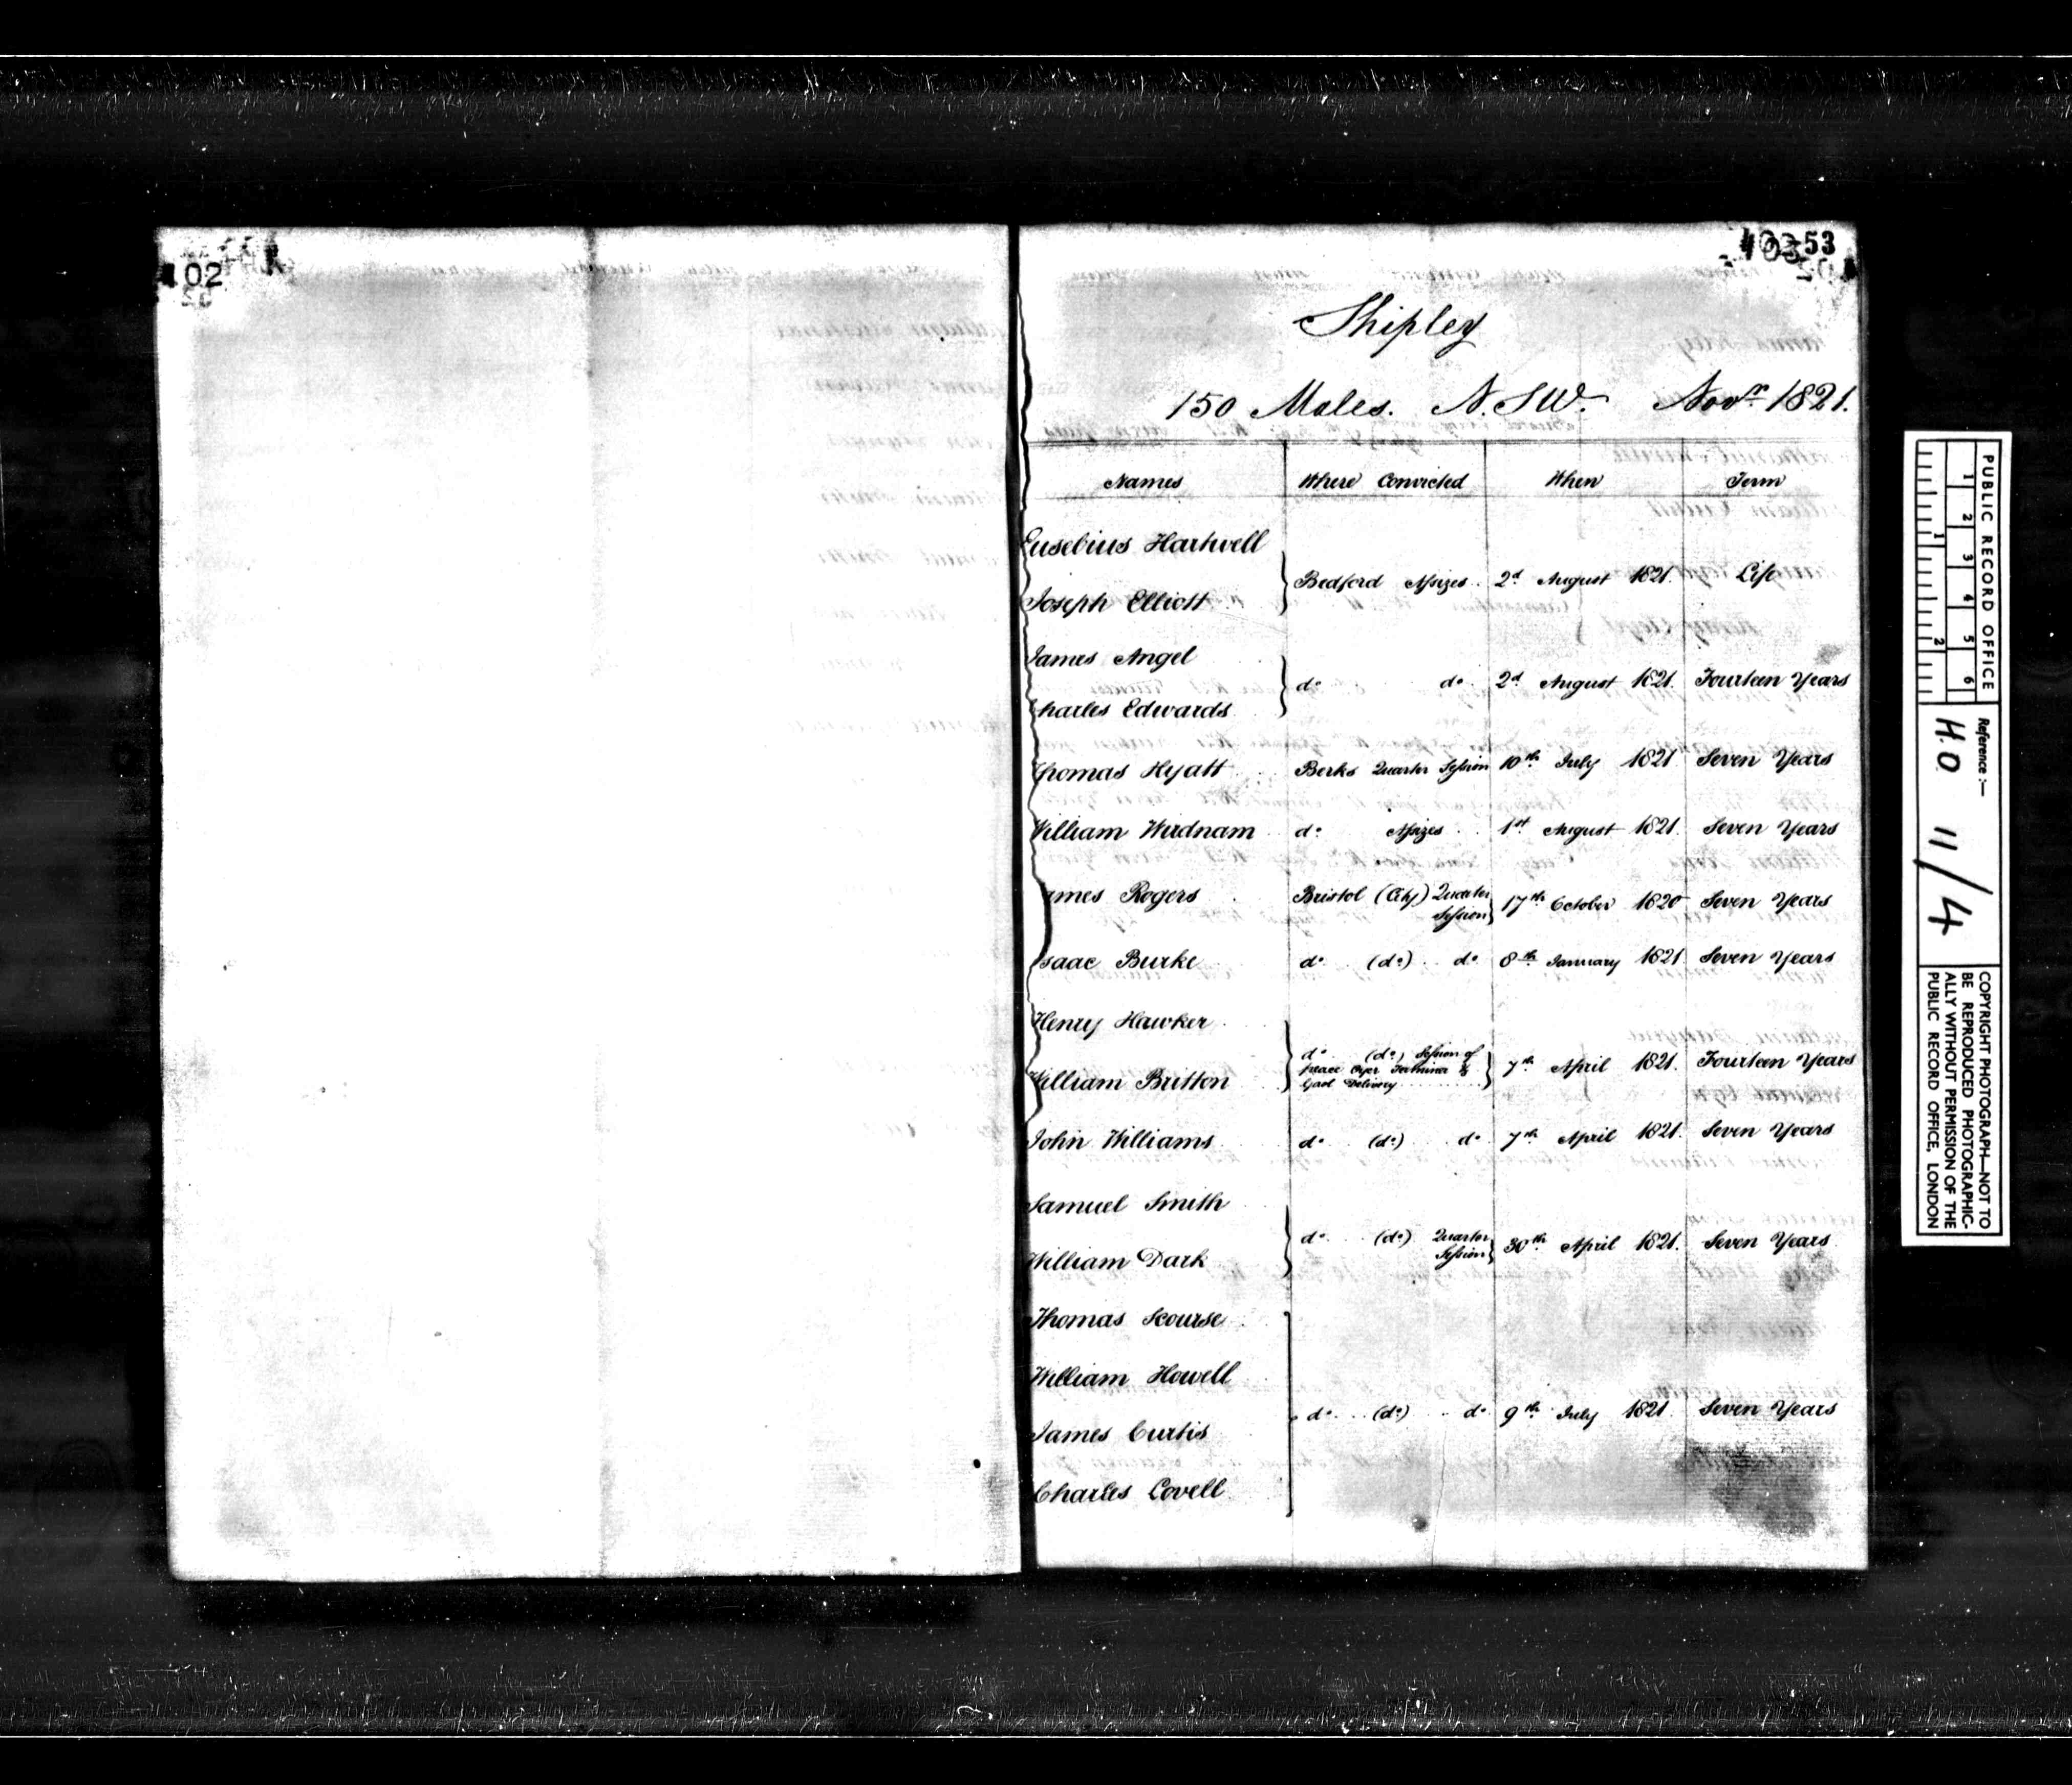 102
53
Shipley
150 Males. N.S.W. Novr 1821.
Names Where Convicted When Term
Eusebius Hartwell
Joseph Elliott } Bedford Assizes 2d August 1821. Life
James Angel
Charles Edwards } do do 2d August 1821. Fourteen Years
Thomas Hyatt Berks Quarter Session 10th July 1821 Seven Years
William Wirdnam do Assizes 1st August 1821. Seven Years
James Rogers Bristol (City) Quarter Session } 17th October 1820 Seven Years
Isaac Burke do (do) do 8th January 1821. Seven Years
Henry Hawker
William Britton } do (do) Session of
peace Oyer Terminer &
Gaol Delivery } 7th April 1821. Fourteen Years
John Williams do (do) do 7th April 1821. Seven Years
Samuel Smith
William Dark } do (do) Quarter Session } 30th April 1821. Seven Years
Thomas Scourse
William Howell
James Curtis
Charles Lovell } do (do) do 9th July 1821. Seven Years
PUBLIC RECORD OFFICE
1 2 3 4 5 6
1 2
Reference:—
H.O. 11/4
COPYRIGHT PHOTOGRAPH—NOT TO
BE REPRODUCED PHOTOGRAPHIC-
ALLY WITHOUT PERMISSION OF THE
PUBLIC RECORD OFFICE, LONDON